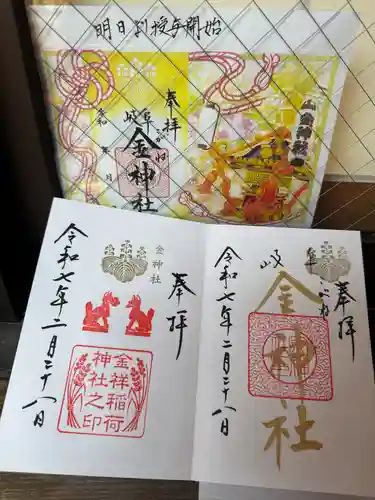 明日より授与開始
奉拝
岐阜
金神社
令和 年 月 日
山金神社
金神社
奉拝
令和七年二月二十八日
金祥稲荷
神社之印
奉拝
岐阜
金神社
令和七年二月二十八日